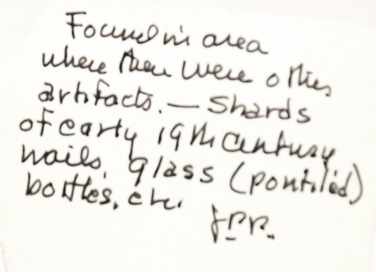 Found in area
where there were other
artifacts. — Shards
of early 19th century
nails, glass (pontiled)
bottles, etc.